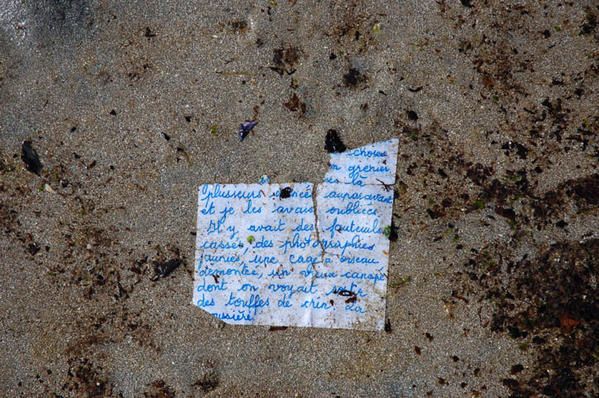 choses
grenier
là
plusieurs années auparavant
et je les avais oubliées.
Il y avait des fauteuils
cassés, des photographies
jaunies, une cage à oiseau
démontée, un vieux canapé
dont on voyait sortir
des touffes de crin. La
poussière